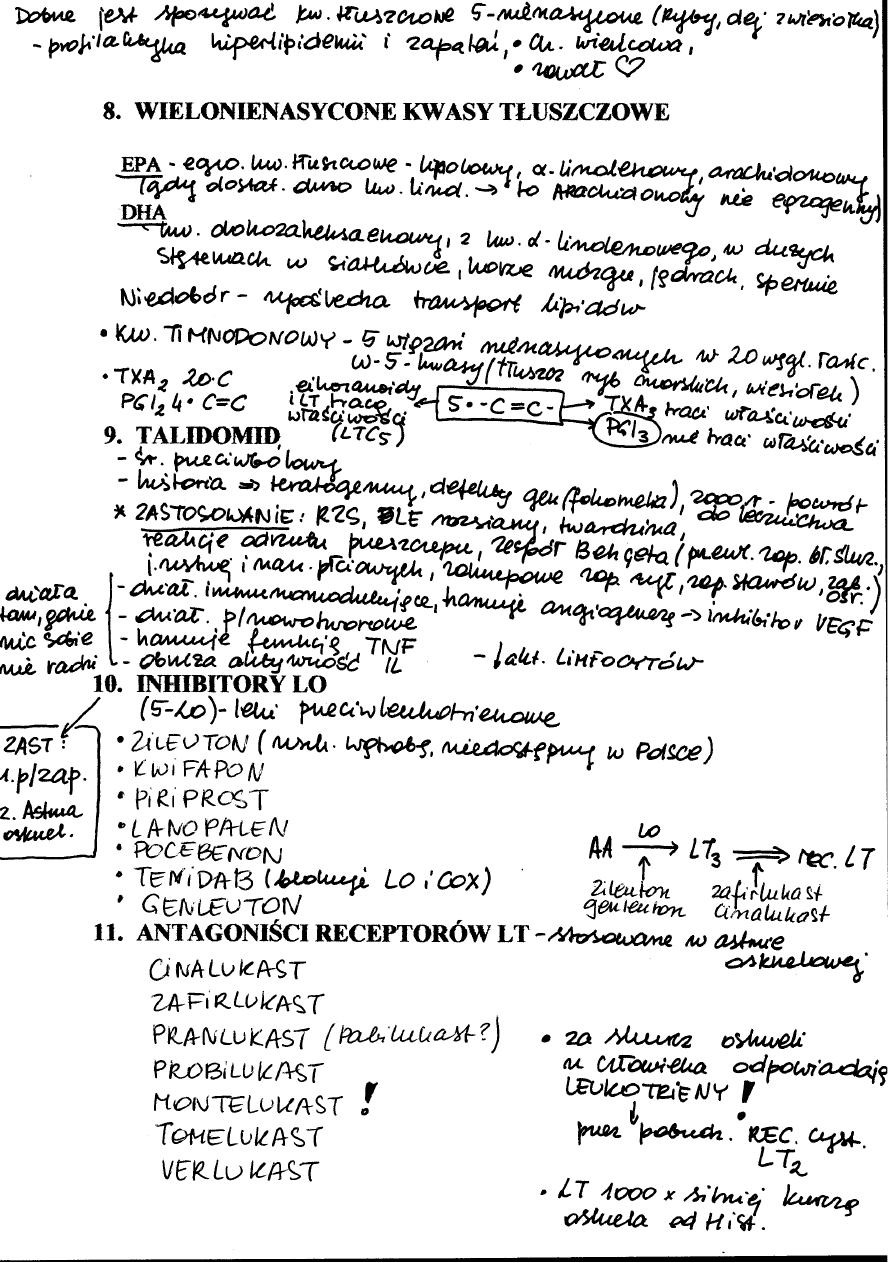 Dobrze jest spożywać kw. tłuszczowe 5-nienasycone (Ryby, olej z wiesiołka)
- profilaktyka hiperlipidemii i zapaleń, • ch. wieńcowa,
• zawał ♡
8. WIELONIENASYCONE KWASY TŁUSZCZOWE
EPA - egzo. kw. tłuszczowe - linolowy, α-linolenowy, arachidonowy
(gdy dostat. dużo kw. linol. → to Arachidonowy nie egzogenny)
DHA
kw. dokozaheksaenowy, z kw. α-linolenowego, w dużych
stężeniach w siatkówce, korze mózgu, jądrach, spermie
Niedobór - upośledza transport lipidów
• KW. TIMNODONOWY - 5 wiązań nienasyconych w 20 węgl. łańc.
ω-5-kwasy (tłuszcz ryb morskich, wiesiołek)
• TXA2 20·C
PGI2 4· C=C
eikozanoidy
i LT tracą
właściwości
(LTC5)
← 5 • -C=C- → TXA3 traci właściwości
→ PGI3 nie traci właściwości
9. TALIDOMID
- śr. przeciwbólowy
- historia ⇒ teratogenny, defekty gen (fokomelia), 2000 r - powrót
do lecznictwa
* ZASTOSOWANIE: RZS, SLE rozsiany, twardzina,
reakcje odrzutu przeszczepu, zespół Behçeta (przewl. zap. bł. śluz.
j. ustnej i narz. płciowych, zakrzepowe zap. żył, zap. stawów, zap. ośr.)
działa
tam, gdzie
nic sobie
nie radzi
- dział. immunomodulujące, hamuje angiogenezę → inhibitor VEGF
- dział. p/nowotworowe
- hamuje funkcję TNF
- obniża aktywność IL
- ↓ akt. LIMFOCYTÓW
10. INHIBITORY LO
(5-LO) - leki przeciwleukotrienowe
ZAST:
1. p/zap.
2. Astma
oskrzel.
• ZILEUTON (uszk. wątrobę, niedostępny w Polsce)
• KWIFAPON
• PIRIPROST
• LANOPALEN
• POCEBENON
• TENIDAB (blokuje LO i COX)
• GENLEUTON
LO
AA → LT3 ⇒ rec. LT
↑ ↑
zileuton zafirlukast
genleuton cinalukast
11. ANTAGONIŚCI RECEPTORÓW LT - stosowane w astmie
oskrzelowej
CINALUKAST
ZAFIRLUKAST
PRANLUKAST (Pabilukast?)
PROBILUKAST
MONTELUKAST !
TOMELUKAST
VERLUKAST
• za skurcz oskrzeli
u człowieka odpowiadają
LEUKOTRIENY !
↓
przez pobudz. REC. cyst.
LT2
• LT 1000 x silniej kurczą
oskrzela od Hist.